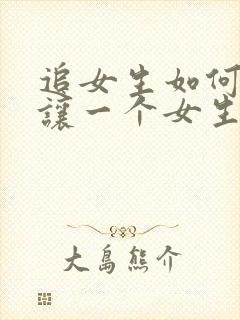 追女生如何
讓一个女生
大島熊介